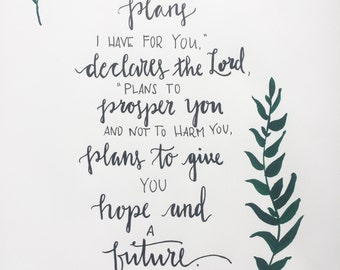 plans
I HAVE FOR YOU,"
declares the Lord,
"PLANS TO
prosper you
AND NOT TO HARM YOU,
plans to give
YOU
hope and
A
future.